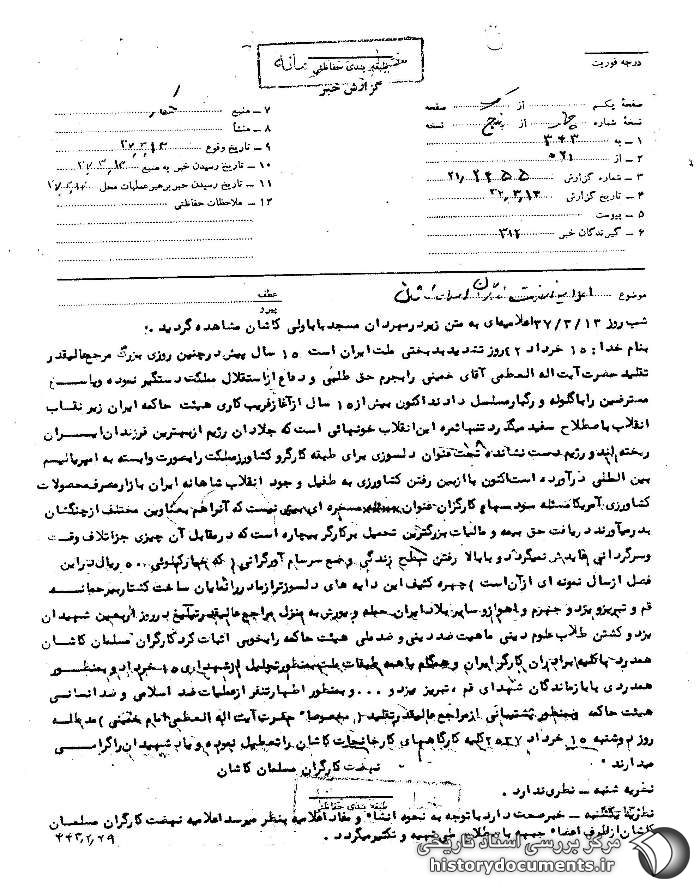 درجه فوریت
طبقه بندی حفاظتی
گزارش خبر
صفحه یکم از صفحه
نسخه شماره از پنج نسخه
۱ ـ به ۳۴۳
۲ ـ از ۵۲۱
۳ ـ شماره گزارش
۴ ـ تاریخ گزارش
۵ ـ پیوست
۶ ـ گیرندگان خبر ۳۱۲
۷ ـ منبع
۸ ـ منشأ
۹ ـ تاریخ وقوع
۱۰ ـ تاریخ رسیدن خبر به منبع
۱۱ ـ تاریخ رسیدن خبر برهبر عملیات محل
۱۲ ـ ملاحظات حفاظتی
موضوع
عطف
پیرو
شب روز ۳۷/۳/۱۳ اعلامیه‌ای به متن زیر در مهردان مسجد باباولی کاشان مشاهده گردید :
بنام خدا : ۱۵ خرداد ۴۲ روز تشدید بدبختی ملت ایران است ۱۵ سال پیش در چنین روزی بزرگ مرجع عالیقدر
تقلید حضرت آیت اله العظمی آقای خمینی را بجرم حق طلبی و دفاع از استقلال مملکت دستگیر نموده و پاسخ
معترضین را با گلوله و رگبار مسلسل دادند اکنون بیش از ۱۵ سال از آغاز فریب کاری هیئت حاکمه ایران زیر نقاب
انقلاب باصطلاح سفید میگذرد تنها ثمره این انقلاب خونهائی است که جلادان رژیم از بهترین فرزندان ایران
ریخته اند و رژیم دست نشانده تحت عنوان دلسوزی برای طبقه کارگر و کشاورز مملکت را بصورت وابسته به امپریالیسم
بین المللی درآورده است اکنون با از بین رفتن کشاورزی به طفیل و جود انقلاب شاهانه ایران بازار مصرف محصولات
کشاورزی آمریکا مسئله سود سهام کارگران عنوان مسخره ای بیش نیست که آنرا هم بعناوین مختلف از چنگشان
بدر میآورند دریافت حق بیمه و مالیات بزرگترین تحمیل بر کارگر بیچاره است که در مقابل آن چیزی جز اتلاف وقت
و سرگردانی عایدش نمیگردد و با بالا رفتن سطح زندگی و ضع سرسام آور گرانی ( که خیار کیلوئی ۵۰۰ ریال در این
فصل از سال نمونه ای از آن است ) چهره کثیف این دایه های دلسوزتر از مادر را نمایان ساخت کشتار بیرحمانه
قم و تبریز و یزد و جهرم و اهواز و سایر بلاد ایران حمله و یورش به منزل مراجع عالیقدر در روز اربعین شهیدان
یزد و کشتن طلاب علوم دینی ماهیت ضد دینی و ضد ملی هیئت حاکمه را بخوبی اثبات کرد کارگران مسلمان کاشان
همدرد با کلیه برادران کارگر ایران و همگام با همه طبقات ملت بمنظور تجلیل از شهدای ۱۵ خرداد و بمنظور
همدردی با بازماندگان شهدای قم ، تبریز و یزد و . . . و بمنظور اظهار تنفر از عملیات ضد اسلامی و ضد انسانی
هیئت حاکمه و بمنظور پشتیبانی از مراجع عالیقدر تقلید ( مخصوصا" حضرت آیت اله العظمی امام خمینی ) مدظله
روز دوشنبه ۱۵ خرداد ۲۵۳۷ کلیه کارگاههای کارخانجات کاشان را تعطیل نموده و یاد شهیدان را گرامی
میدارند "
نهضت کارگران مسلمان کاشان
نظریه شنبه ـ نظری ندارد .
طبقه بندی حفاظتی
نظریه یکشنبه ـ خبر صحت دارد با توجه به نحوه انشاء و مفاد اعلامیه بنظر میرسد اعلامیه نهضت کارگران مسلمان
کاشان از طرف اعضاء تهیه و تکثیر میگردد .
مرکز بررسی اسناد تاریخی
historydocuments.ir